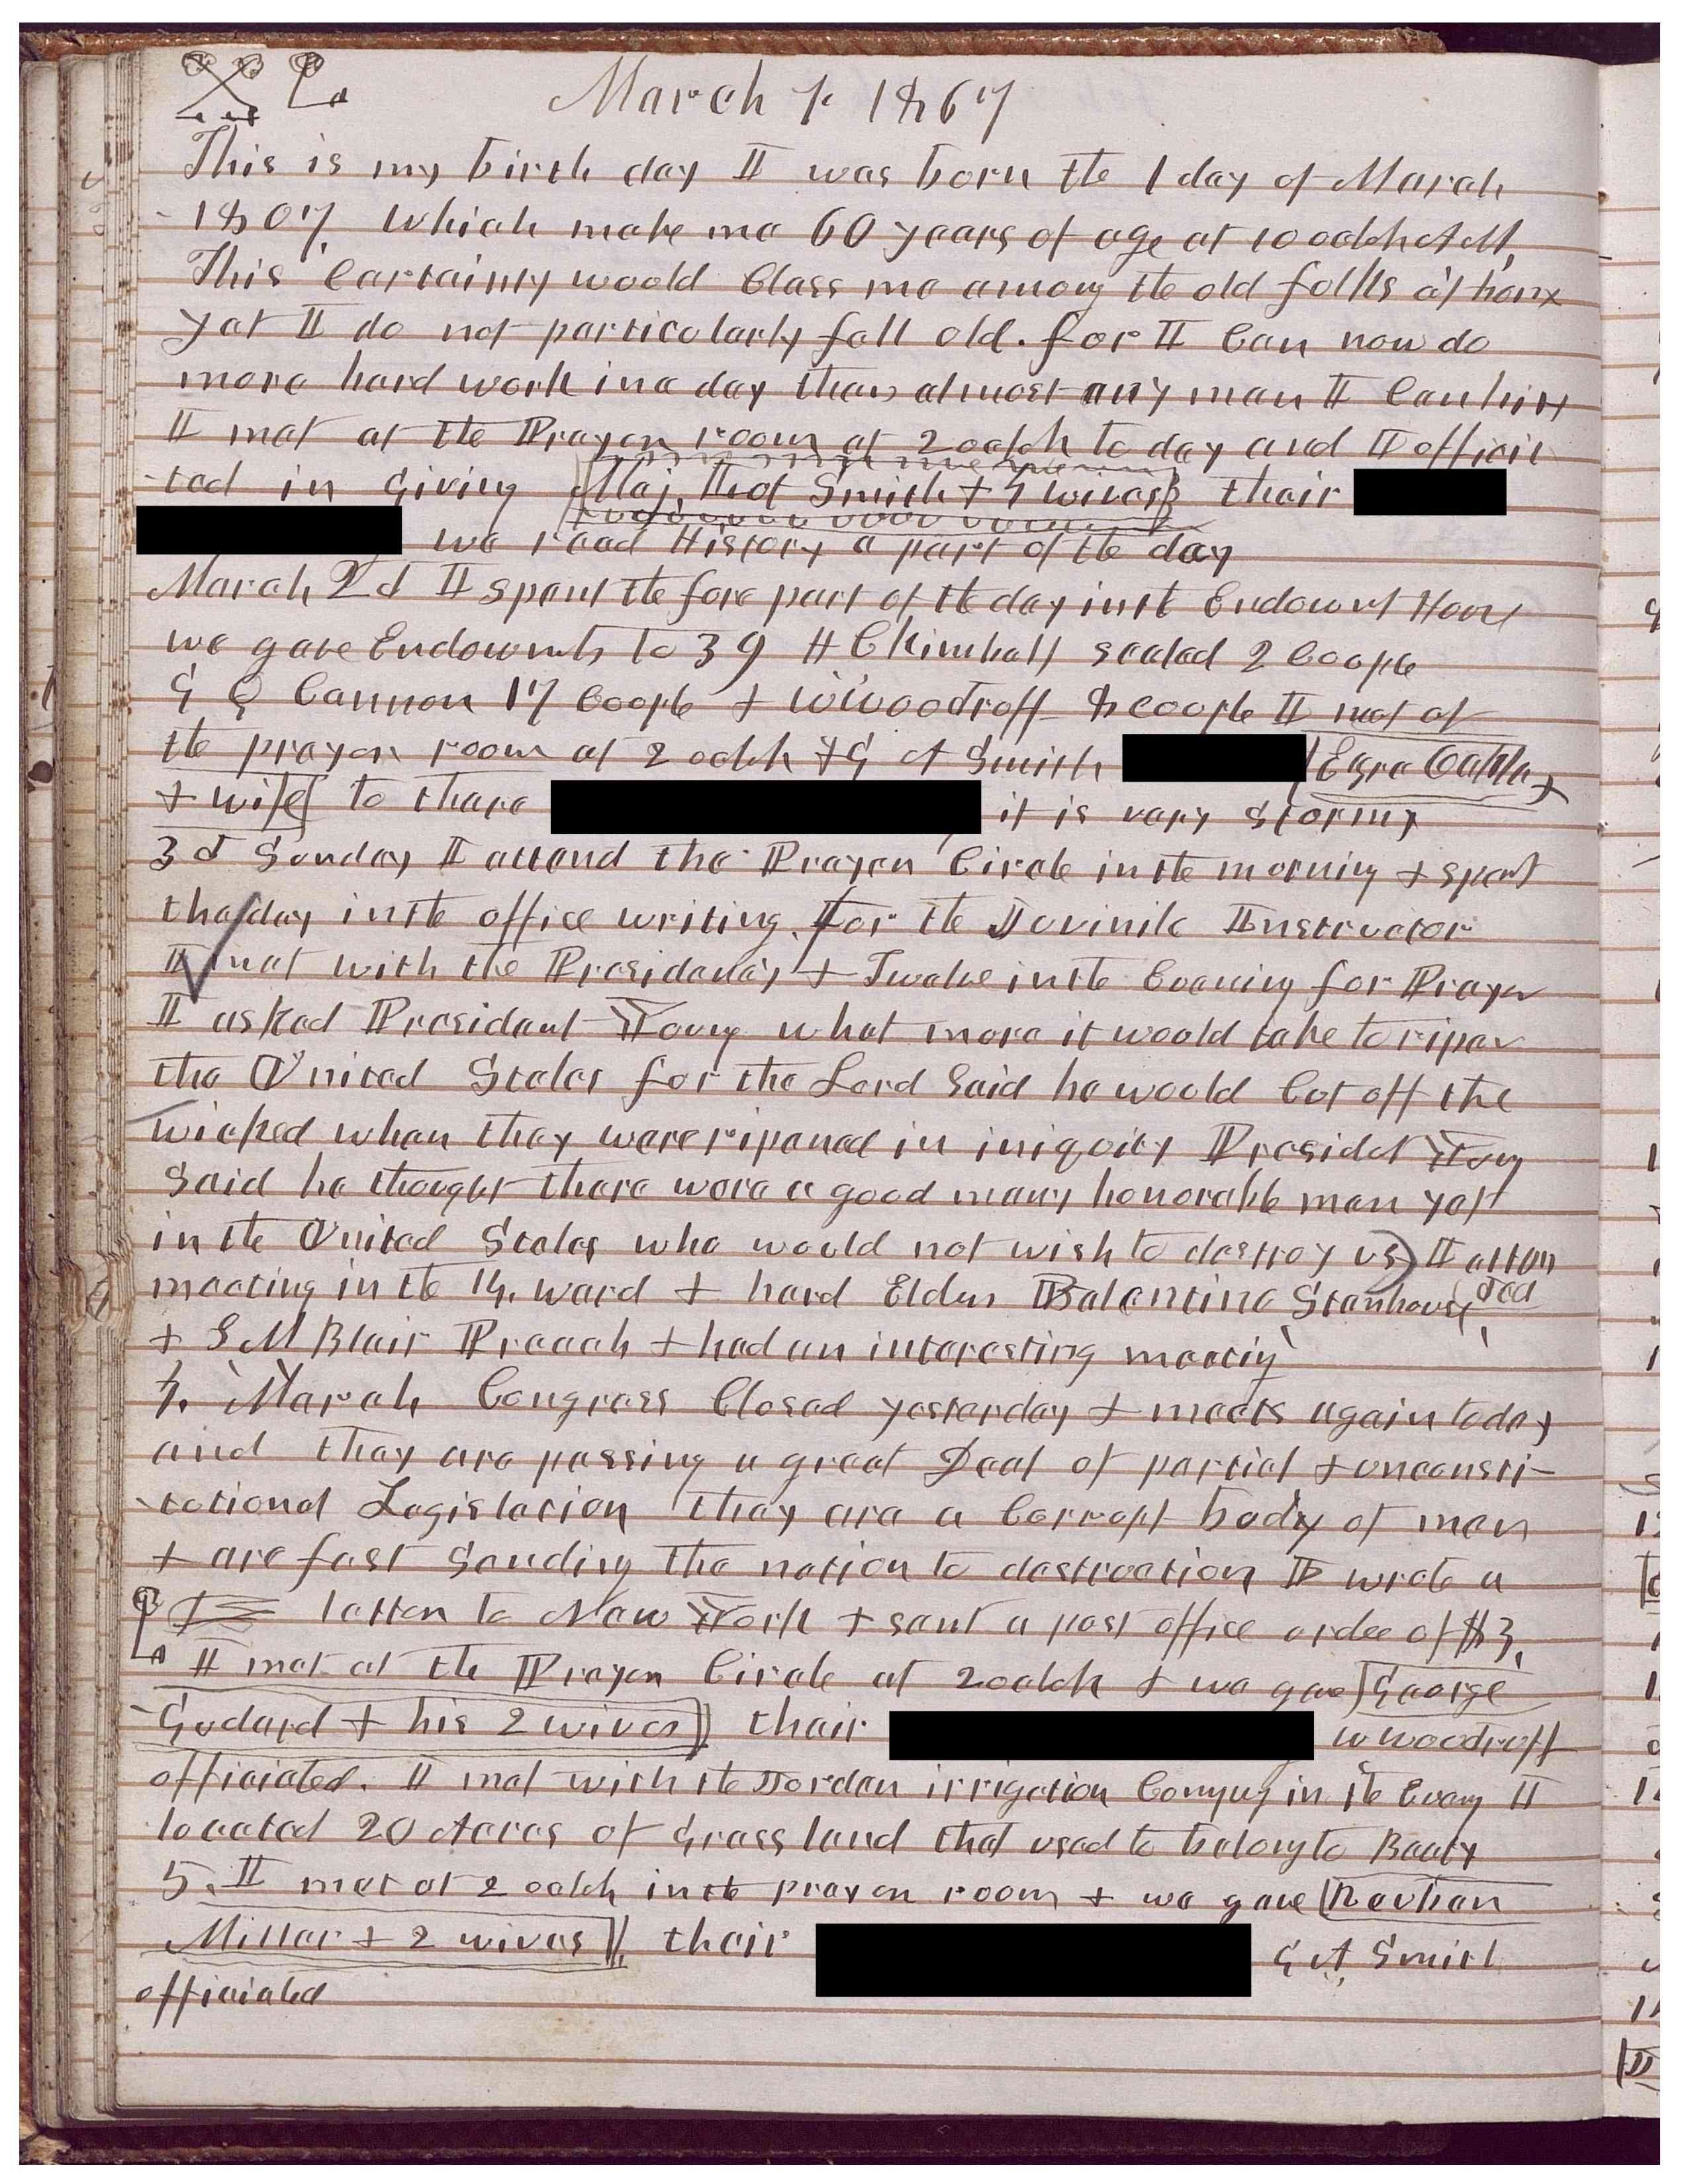 March 1. 1867
This is my birth day I was born the 1 day of March
1807. Which make me 60 years of age at 10 oclok AM.
This Certainly would Class me among the old folks at home
yet I do not particularly fell old. for I Can now do
more hard work in a day than almost any man I Can hire
I met at the Prayer room at 2 oclok to day and I officia
-ted in giving Maj. Lot Smith + 4 wives their
we read History a part of the day
March 2d I spent the fore part of the day in the Endowmt House
we gave Endowmts to 39 H C Kimball sealed 2 Couple
G Q Cannon 17 Couple + W Woodruff 8 couple I met at
the prayer room at 2 oclok + G A Smith Ezra Oakley
+ wife to there it is very stormy
3d Sunday I attend the Prayer Circle in the morning + spent
the day in the office writing for the Juvinile Instructor
I met with the Presidency + Twelve in the Evening for Prayer
I asked President Young what more it would take to ripen
the United States for the Lord Said he would Cut off the
wicked when they were ripened in iniquity Presidet Young
Said he thought there were a good many honorable men yet
in the United States who would not wish to destroy us I atten
ded
meeting in the 14. ward + hard Elder Balentine Stenhouse
+ S M Blair Preach + had an interesting meetig
4. March Congress Closed yesterday + meets again today
and they are passing a great Deal of partial + unconsti-
-tutional Legislation they are a Corrupt body of men
+ are fast Sending the nation to destruction I wrote a
letter to New York + sent a post office order of $3.
I met at the Prayer Circle at 2 oclok + we gave George
Godard + his 2 wives their W Woodruff
officiated. I met with the Jordan irrigation Compny in the Eveng I
located 20 Acres of Grass land that used to belong to Beaty
5. I met at 2 oclok in the prayer room + we gave Reuben
Miller + 2 wives their G A Smith
officiated